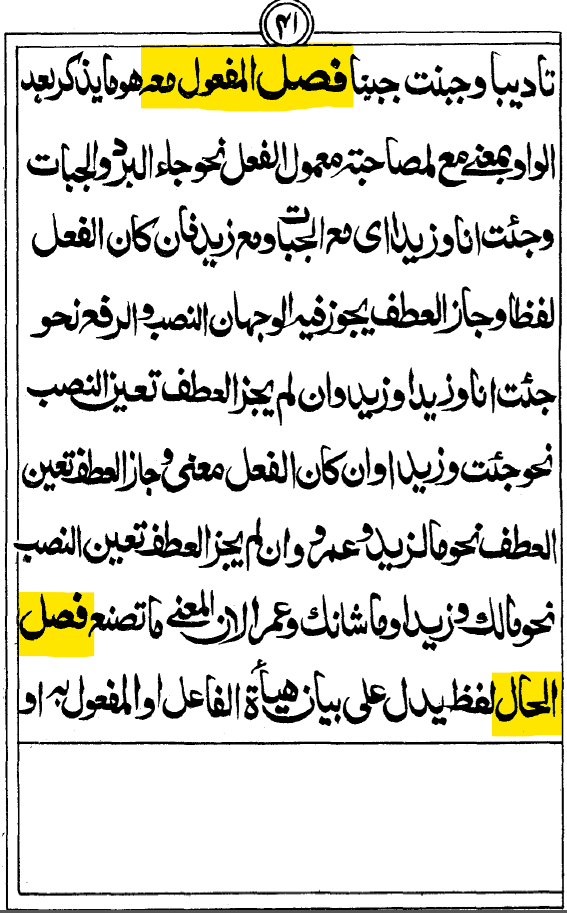 ۴۱
تاديبا وجبنت جبنا فصل المفعول معه هو ما يذكر بعد
الواو بمعنى مع لمصاحبته معمول الفعل نحو جاء البرد والجبات
وجئت انا وزيدا اى مع الجبات ومع زيد فان كان الفعل
لفظا وجاز العطف يجوز فيه الوجهان النصب والرفع نحو
جئت انا وزيدا وزيد وان لم يجز العطف تعين النصب
نحو جئت وزيدا وان كان الفعل معنى وجاز العطف تعين
العطف نحو ما لزيد وعمرو وان لم يجز العطف تعين النصب
نحو مالك وزيدا وما شانك وعمرا لان المعنى ما تصنع فصل
الحال لفظ يدل على بيان هيأة الفاعل او المفعول به او